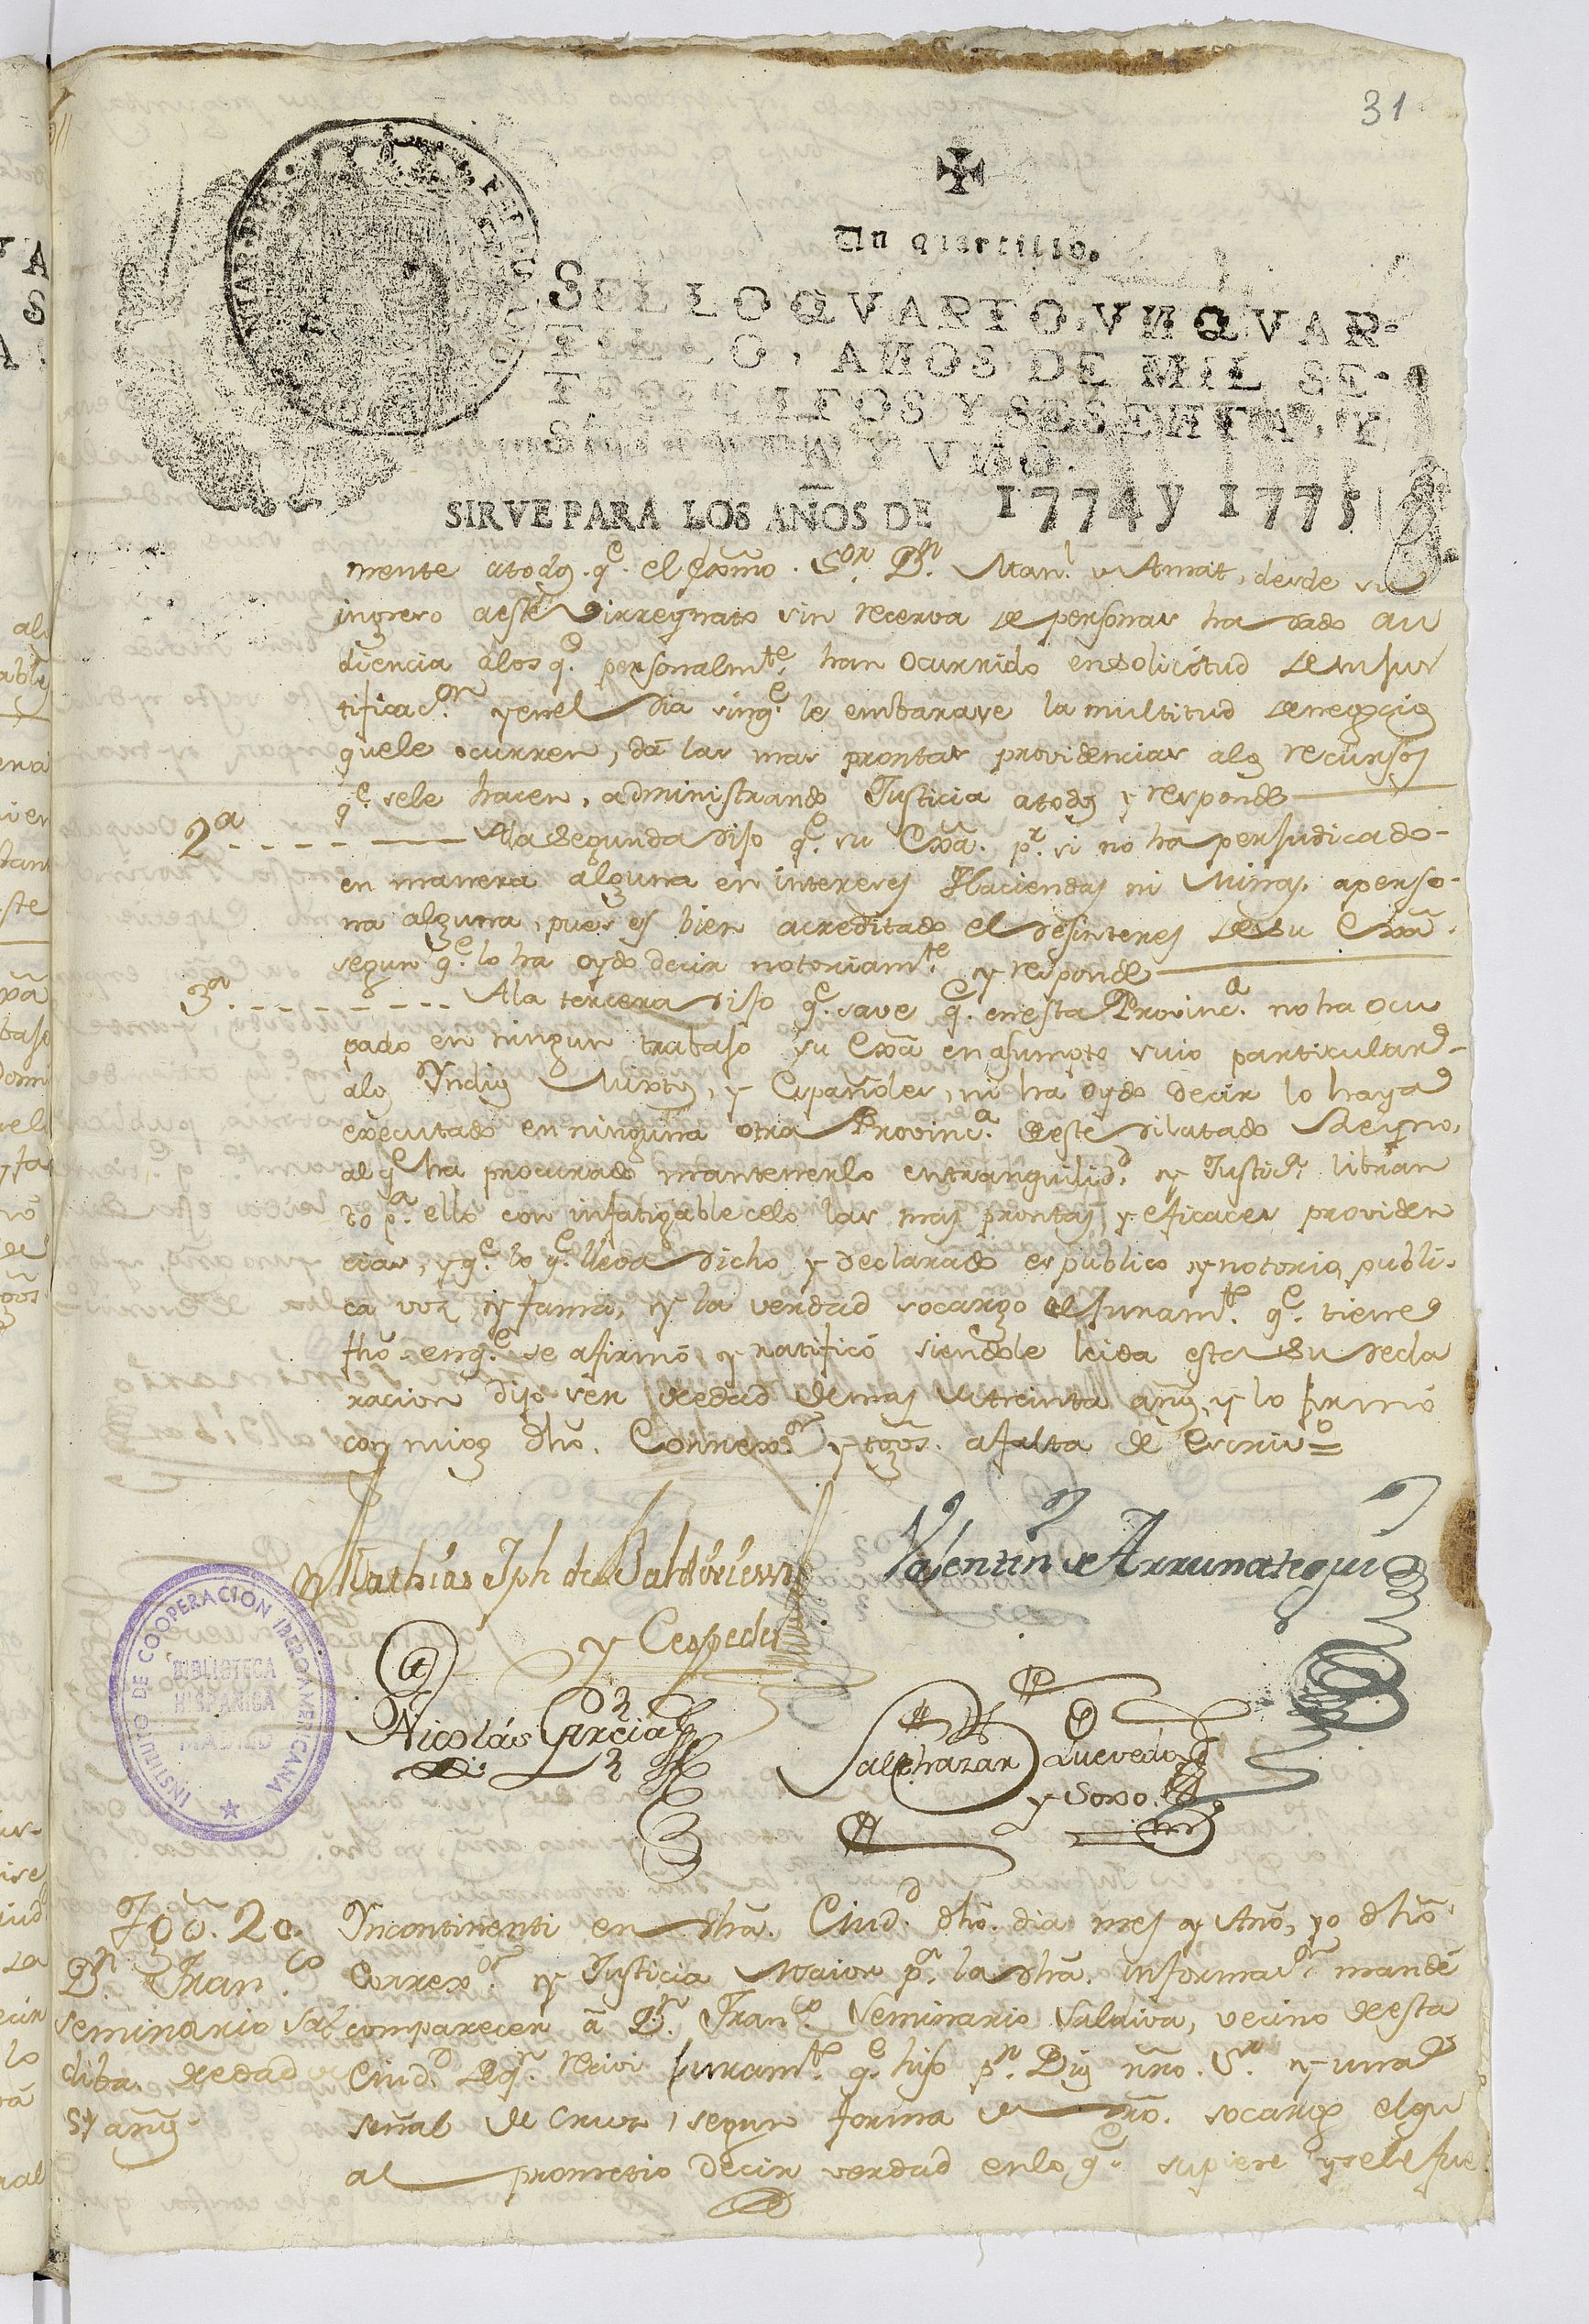 31
Un quartillo.
SELLO QVARTO, VN QVAR-
TILLO, AÑOS DE MIL SE-
TECIENTOS Y SESENTA, Y
SESENTA Y VNO.
SIRVE PARA LOS AÑOS DE 1774 y 1775
mente atodos. qe. el Exmo. Sor. Dn. Manl. de Amat, desde su
ingreso aeste Virreynato sin recerva de personas ha dado au
diencia alos qe. personalmte. han ocurrido ensolicitud de su jus
tificacon. y enel dia sinqe. le embarase la multitud de negocios
quele ocurren, dá las mas prontas providencias alos recursos
qe. sele hacen, administrando Justicia atodos y responde
2a. Ala segunda dijo qe. su Exa. pr. si no ha perjudicado
en manera alguna en intereses Haciendas ni Minas. aperso-
na alguna, pues es bien acreditado el desinteres de su Exa.
segun qe. lo ha oydo decir notoriamte. y responde
3a. Ala tercera dijo qe. save qe. enesta Provinca. no ha ocu
pado en ningun trabajo su Exa en asumpto suio particular
alos Yndios Mixtos, y Españoles, ni ha oydo decir lo haya
executado en ninguna otra Provinca. deeste dilatado Reyno,
al qe ha procurado mantenerlo entranquilidd. y Justica. libran
do pa. ello con infatigable celo las mas prontas, y eficaces providen
cias, y qe. lo qe. lleva dicho y declarado es publico y notorio, publi-
ca voz y fama, y la verdad socargo del juramto. qe. tiene
fho. enqe. se afirmó, y ratificó siendole leida esta su decla
racion dijo ser deedad demas de treinta años, y lo firmó
con migo dho. Correxor. y tgos. afalta de Escrivo=
Mathias Jph de Baldivieso
y Cespedes
Valentin de Arrunategui
Nicolás Garcia
Balthazar Quevedo
y Soxo.
INSTITUTO DE COOPERACION IBEROAMERICANA
BIBLIOTECA
HISPANICA
MADRID
Tgo. 20.
Dn. Franco.
Seminario Sal
diba. deedad de
años
Yncontinenti en dha. Ciudd. dho. dia mes y Año, yo dho
Correxor. y Justicia Maior pa. la dha. informacon. mandé
comparecer á Dn. Franco. Seminario Saldiva, vecino deesta
Ciudd. deqn. recivi juramto. qe. hiso pr. Dios nro. Sr. y una
señal de cruz, segun forma de dro. socargo elqu
al prometio decir verdad enlo qe. supiere y sele fue